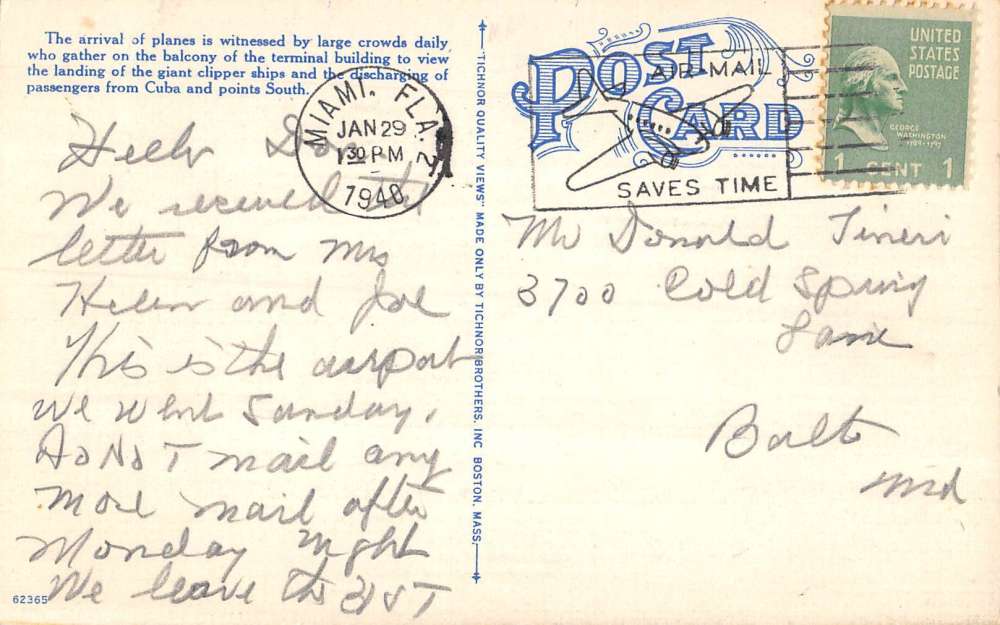 The arrival of planes is witnessed by large crowds daily
who gather on the balcony of the terminal building to view
the landing of the giant clipper ships and the discharging of
passengers from Cuba and points South.
MIAMI, FLA. 2
JAN 29
1 30 PM
1948
POST CARD
AIR MAIL
SAVES TIME
UNITED
STATES
POSTAGE
GEORGE
WASHINGTON
1789-1797
1 CENT 1
Hello
We received the
letter from Mrs
Helen and Joe
This is the airport
we went Sunday.
Do NoT mail any
more mail after
Monday night
We leave the 31ST
62365
"TICHNOR QUALITY VIEWS" MADE ONLY BY TICHNOR BROTHERS, INC. BOSTON, MASS.
Mr Donald Tineri
3700 Cold Spring
Lane
Balto
Md